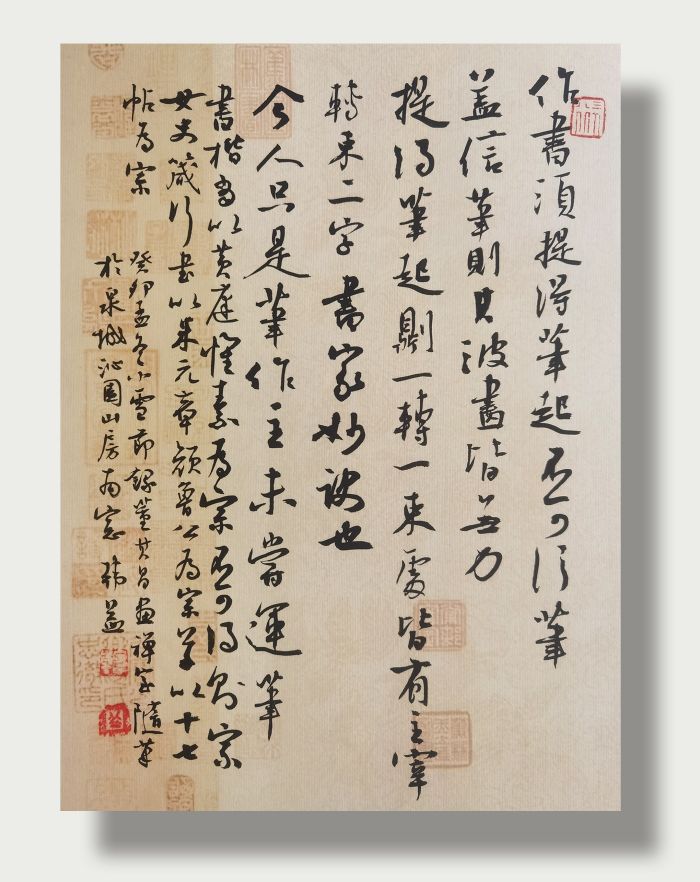 作書須提得筆起不可信筆
蓋信筆則其波畫皆無力
提得筆起則一轉一束處皆有主宰
轉束二字書家妙訣也
今人只是筆作主未嘗運筆
書楷當以黃庭懷素為宗不可得則宗
女史箴行書以米元章顏魯公為宗草以十七
帖為宗
癸卯孟冬小雪節錄董其昌畫禪室隨筆
於泉城沁園山房南窗 韓益